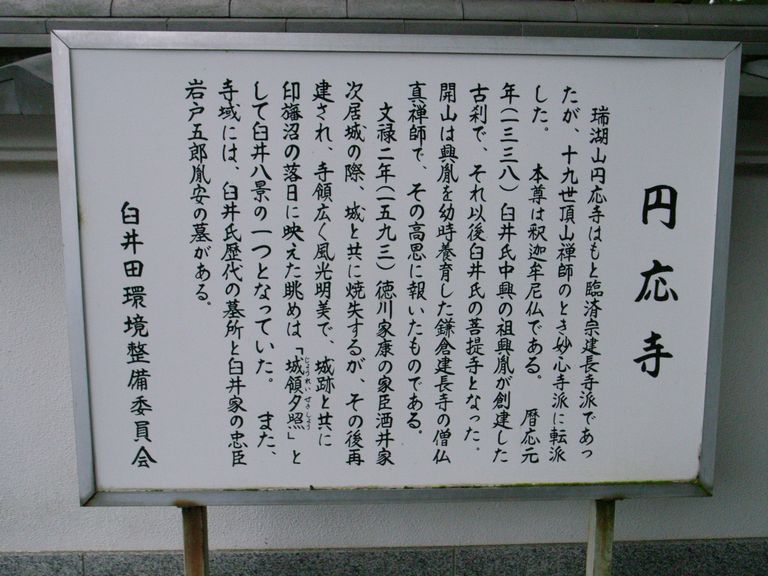 円応寺
瑞湖山円応寺はもと臨済宗建長寺派であっ
たが、十九世頂山禅師のとき妙心寺派に転派
した。　本尊は釈迦牟尼仏である。　暦応元
年（一三三八）臼井氏中興の祖興胤が創建した
古刹で、それ以後臼井氏の菩提寺となった。
開山は興胤を幼時養育した鎌倉建長寺の僧仏
真禅師で、その高恩に報いたものである。
文禄二年（一五九三）徳川家康の家臣酒井家
次居城の際、城と共に焼失するが、その後再
建され、寺領広く風光明美で、城跡と共に
印旛沼の落日に映えた眺めは「城嶺夕照」と
じょうれいせきしょう
して臼井八景の一つとなっていた。　また、
寺域には、臼井氏歴代の墓所と臼井家の忠臣
岩戸五郎胤安の墓がある。
臼井田環境整備委員会